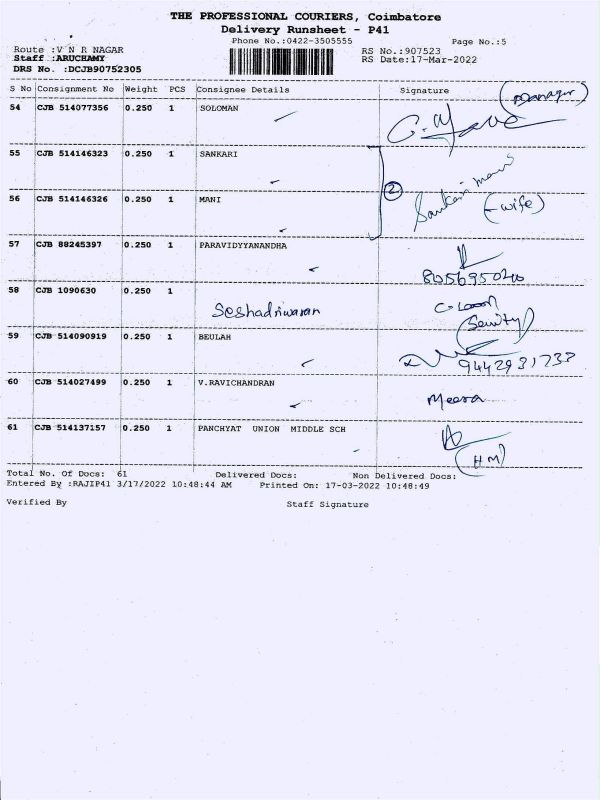 THE PROFESSIONAL COURIERS, Coimbatore
Delivery Runsheet - P41
Phone No.:0422-3505555 Page No.:5
Route :V N R NAGAR RS No.:907523
Staff :ARUCHAMY RS Date:17-Mar-2022
DRS No. :DCJB90752305
S No Consignment No Weight PCS Consignee Details Signature
(Manager)
54 CJB 514077356 0.250 1 SOLOMAN
55 CJB 514146323 0.250 1 SANKARI
2
56 CJB 514146326 0.250 1 MANI
(-wife)
57 CJB 88245397 0.250 1 PARAVIDYYANANDHA
58 CJB 1090630 0.250 1
59 CJB 514090919 0.250 1 BEULAH
60 CJB 514027499 0.250 1 V.RAVICHANDRAN
Meera
61 CJB 514137157 0.250 1 PANCHYAT UNION MIDDLE SCH
(HM)
Total No. Of Docs: 61 Delivered Docs: Non Delivered Docs:
Entered By :RAJIP41 3/17/2022 10:48:44 AM Printed On: 17-03-2022 10:48:49
Verified By Staff Signature